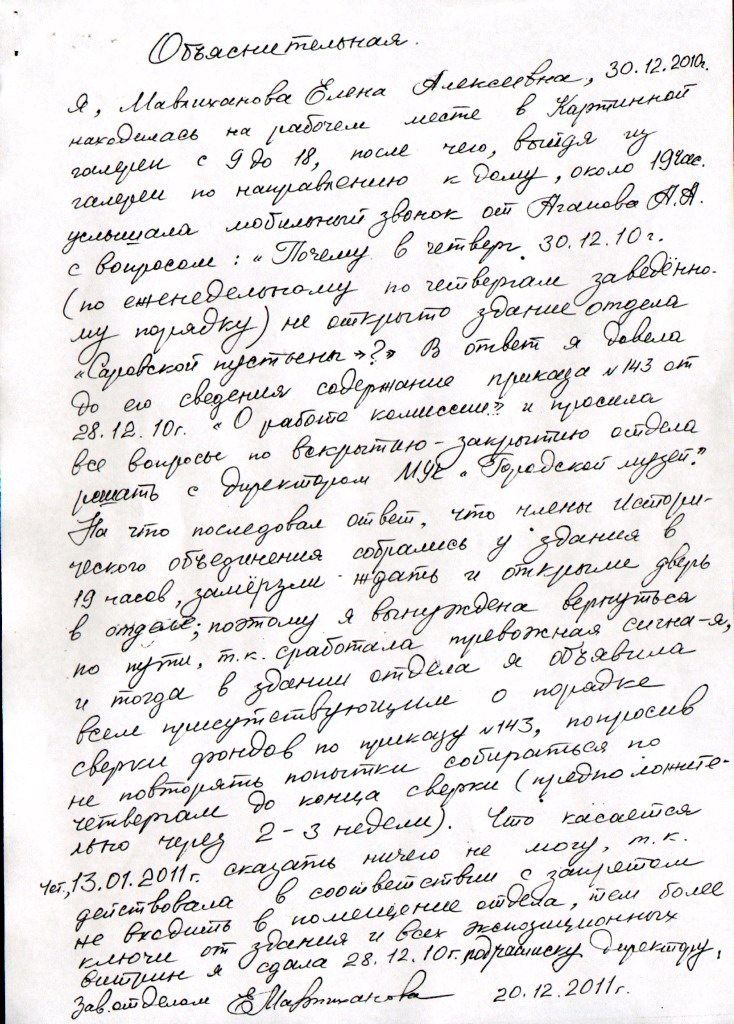 Объяснительная.
Я, Мавлиханова Елена Алексеевна, 30.12.2010г.
находилась на рабочем месте в Картинной
галереи с 9 до 18, после чего, выйдя из
галереи по направлению к дому, около 19 час.
услышала мобильный звонок от Агапова А.А.
с вопросом: "Почему в четверг 30.12.10г.
(по еженедельному по четвергам заведённо-
му порядку) не открыто здание отдела
"Саровской пустыены"?" В ответ я довела
до его сведения содержание приказа №143 от
28.12.10г. "О работе комиссии" и просила
все вопросы по вскрытию-закрытию отдела
решать с директором МУК "Городской музей".
На что последовал ответ, что члены Истори-
ческого объединения собрались у здания в
19 часов, замёрзли ждать и открыли дверь
в отделе; поэтому я вынуждена вернуться
по пути, т.к. сработала тревожная сигна-я,
и тогда в здании отдела я объявила
всем присутствующим о порядке
сверки фондов по приказу №143, попросив
не повторять попытки собираться по
четвергам до конца сверки (предположите-
льно через 2-3 недели). Что касается
чет., 13.01.2011г. сказать ничего не могу, т.к.
действовала в соответствии с запретом
не входить в помещение отдела, тем более
ключи от здания и всех экспозиционных
витрин я сдала 28.12.10г. под расписку директору.
Зав.отделом 20.12.2011г.